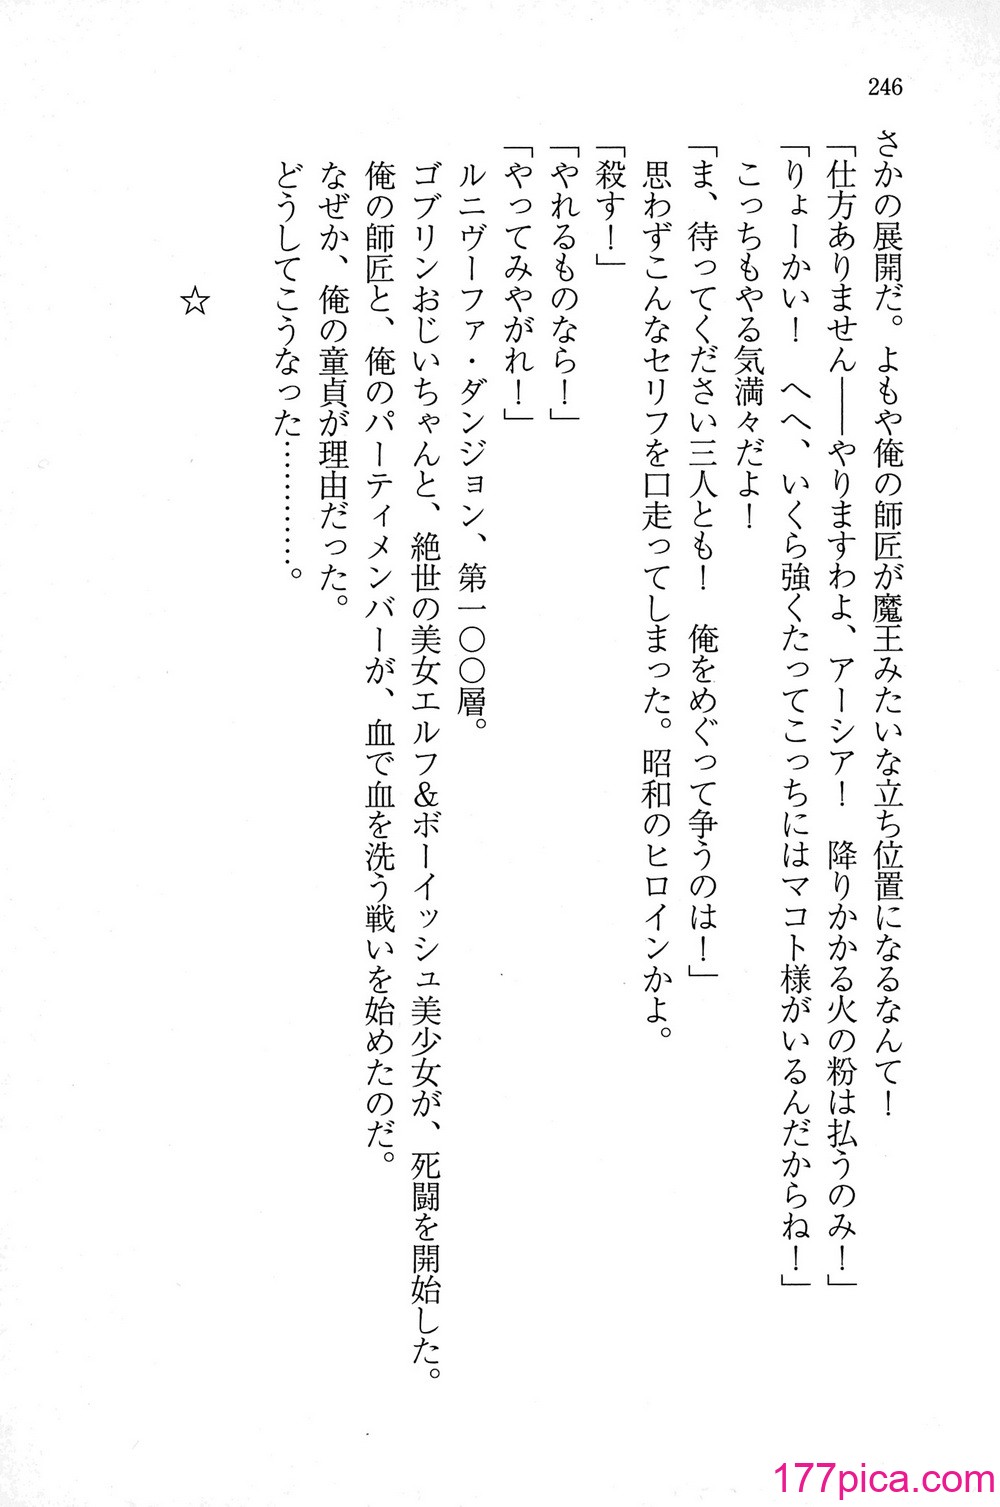 246
さかの展開だ。よもや俺の師匠が魔王みたいな立ち位置になるなんて！
「仕方ありません――やりますわよ、アーシア！　降りかかる火の粉は払うのみ！」
「りょーかい！　へへ、いくら強くたってこっちにはマコト様がいるんだからね！」
　こっちもやる気満々だよ！
「ま、待ってください三人とも！　俺をめぐって争うのは！」
　思わずこんなセリフを口走ってしまった。昭和のヒロインかよ。
「殺す！」
「やれるものなら！」
「やってみやがれ！」
　ルニヴーファ・ダンジョン、第一〇〇層。
　ゴブリンおじいちゃんと、絶世の美女エルフ＆ボーイッシュ美少女が、死闘を開始した。
　俺の師匠と、俺のパーティメンバーが、血で血を洗う戦いを始めたのだ。
　なぜか、俺の童貞が理由だった。
　どうしてこうなった…………。
☆
177pica.com